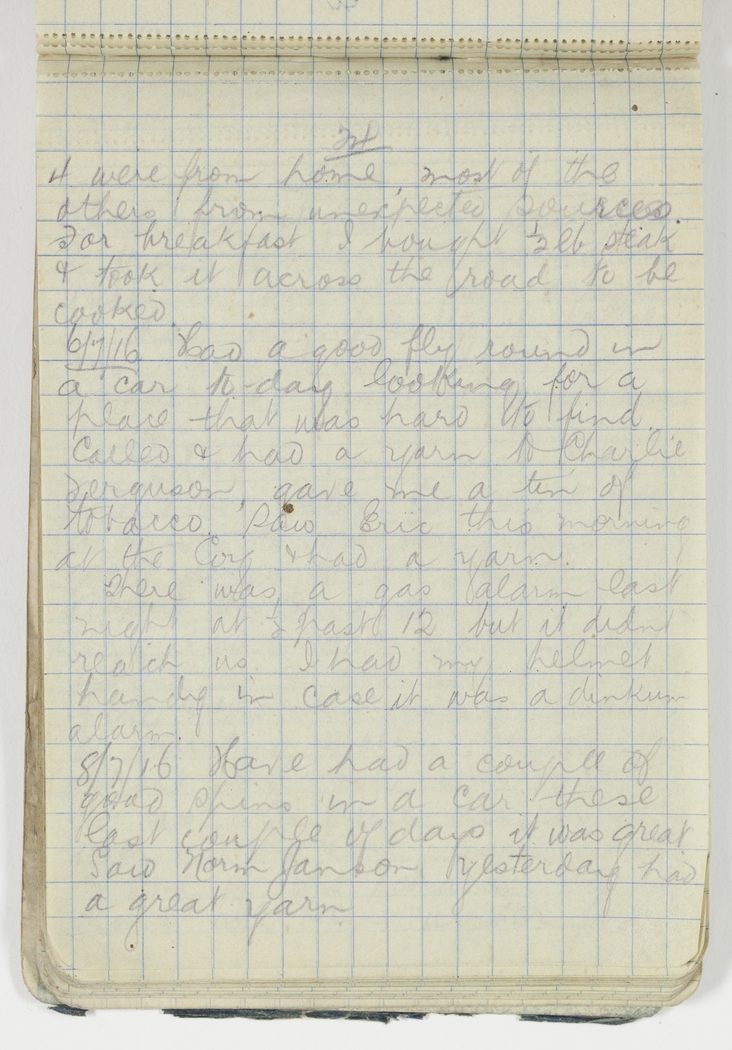 24
4 were from home, most of the
others from unexpected sources.
For breakfast I bought ½ lb steak
& took it across the road to be
cooked.
6/7/16 Had a good fly round in
a car to-day looking for a
place that was hard to find.
Called & had a yarn to Charlie
Ferguson, gave me a tin of
tobacco. Saw Eric this morning
at the & had a yarn.
There was a gas alarm last
night at ½ past 12 but it didnt
reach us. I had my helmet
handy in case it was a dinkum
alarm.
8/7/16 Have had a couple of
good spins in a car these
last couple of days it was great
Saw Norm Janson yesterday had
a great yarn